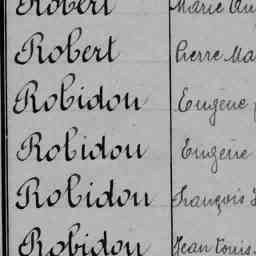 Robert Marie
Robert Pierre Ma
Robidou Eugène
Robidou Eugène
Robidou François
Robidou Jean Louis